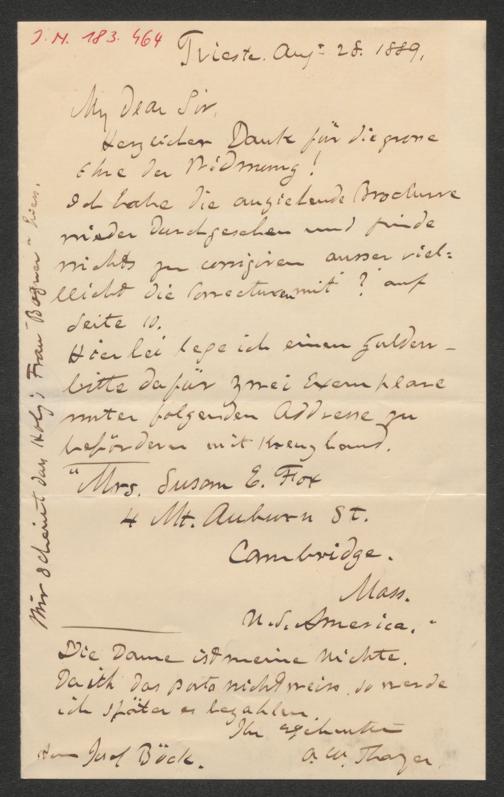 J.N. 183.464
Trieste. Augt 28. 1889.
My dear Sir,
Herzlichen Dank für die grosse
Ehre der Widmung!
Ich habe die anziehende Brochure
wieder durchgesehen und finde
nichts zu corrigiren ausser viel=
leicht die Correcturen mit ? auf
Seite 10.
Hierbei lege ich einen Gulden –
bitte dafür zwei Exemplare
unter folgenden Addresse zu
befördern mit Kreuzband.
"Mrs. Susan E. Fox
4 Mt. Auburn St.
Cambridge.
Mass.
U.S. America."
Die Dame ist meine Nichte.
Da ich das Porto nicht weiss, so werde
ich später es bezahlen.
Ihr
A. W. Thayer
Herrn Josef Böck.
Mir scheint das Frau